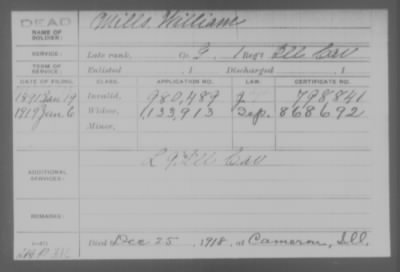 DEAD
NAME OF SOLDIER:
Mills, William
SERVICE:
Late rank, Co. G, 1 Reg't Ill Cav
TERM OF SERVICE:
Enlisted , 1 Discharged , 1
DATE OF FILING. CLASS. APPLICATION NO. LAW. CERTIFICATE NO.
1891 Jan 19 Invalid, 980,489 J 798,841
1919 Jan 6 Widow, 1,133,913 Sep. 868692
Minor,
ADDITIONAL SERVICES:
L 9 Ill Cav
REMARKS:
Died Dec 25, 1918, at Cameron, Ill.